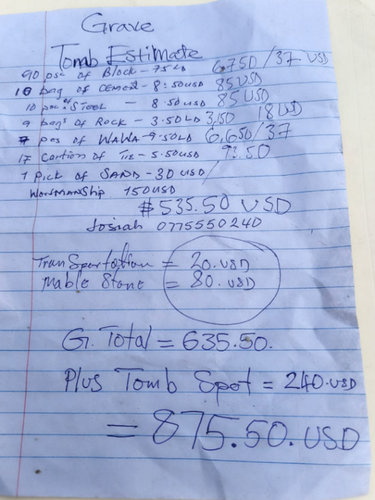 Grave
Tomb Estimate
90 psc of Block - 75 LD 6,750/37 USD
10 bag of cement - 8:50 USD 85 USD
10 psc of Steel - 8.50 USD 85 USD
9 bags of Rock - 3.50 LD 3,150 18 USD
7 pcs of WAWA - 9.50 LD 6,650/37
17 Cartion of Tile - 5.50 USD 93.50
1 pick of SAND - 30 USD/
WorkmanShip 150 USD
$535.50 USD
Josiah 0775550240
Transportation = 20. USD
Mable Stone = 80. USD
G. Total = 635.50.
Plus Tomb Spot = 240. USD
= 875.50. USD